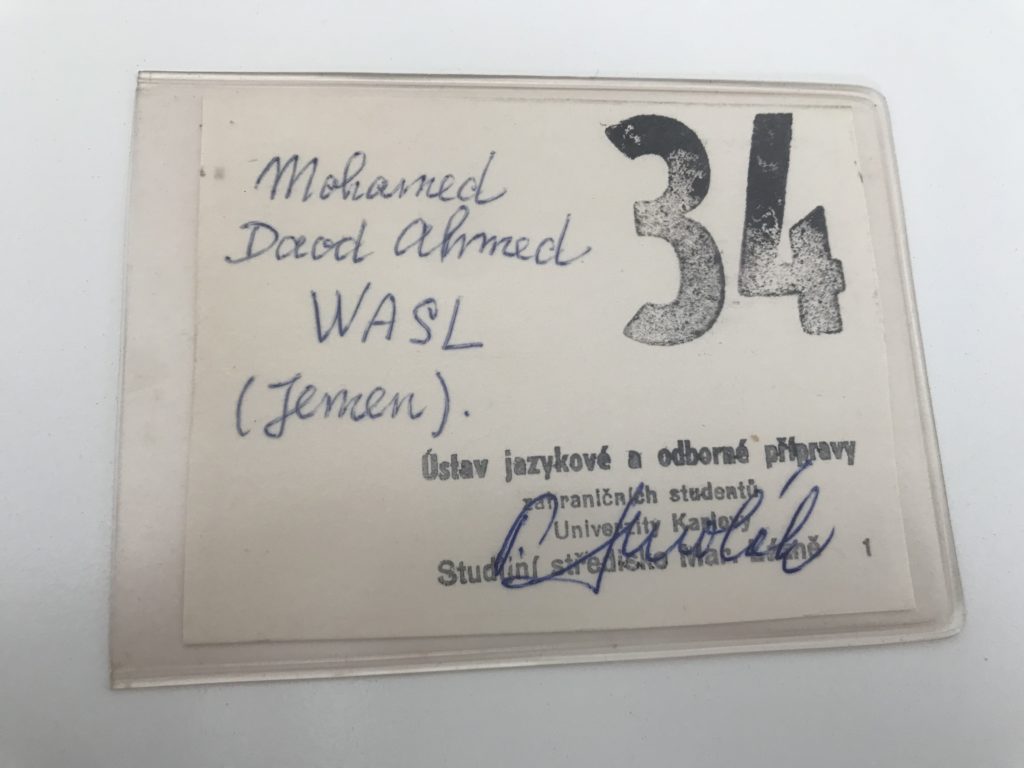 Mohamed
Daod Ahmed
WASL
(Jemen).
34
Ústav jazykové a odborné přípravy
zahraničních studentů
University Karlovy
Studijní středisko Mar. Lázně 1